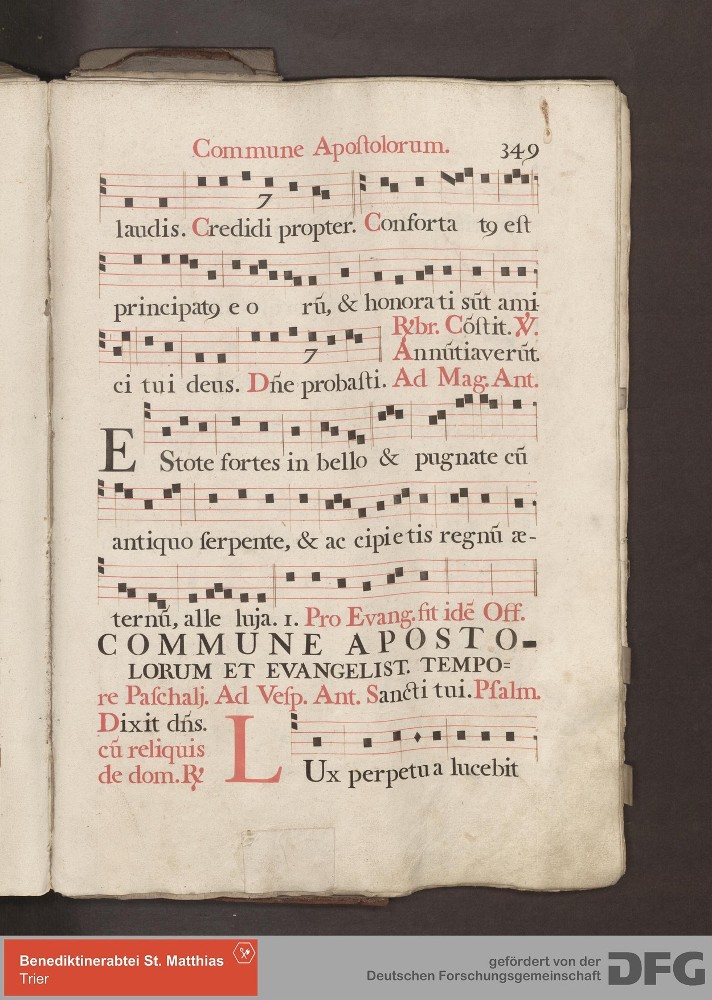 Commune Apoſtolorum. 349
7
laudis. Credidi propter. Conforta tꝯ eſt
principatꝯ e o rũ, & honora ti sũt ami-
R/br. Cõſtit. V/.
7 Annũtiaverũt.
ci tui deus. Dñe probaſti. Ad Mag. Ant.
EStote fortes in bello & pugnate cũ
antiquo ſerpente, & ac cipietis regnũ æ-
ternũ, alle luja. 1. Pro Evang. fit idẽ Off.
COMMUNE APOSTO-
LORUM ET EVANGELIST. TEMPO=
re Paſchalj. Ad Veſp. Ant. Sancti tui. Pſalm.
Dixit dñs.
cũ reliquis
de dom. R/
LUx perpetua lucebit
Benediktinerabtei St. Matthias
Trier
gefördert von der
Deutschen Forschungsgemeinschaft
DFG